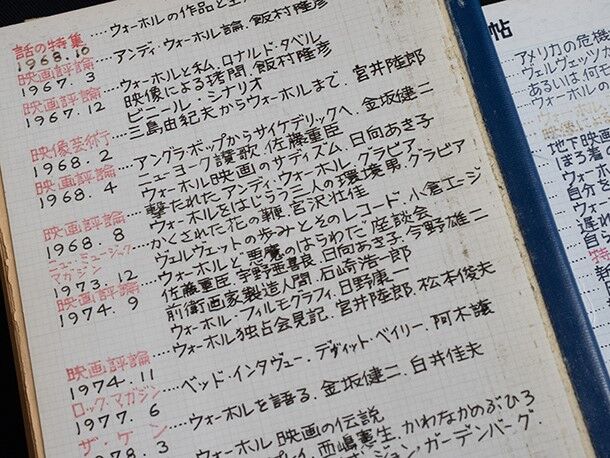 話の特集
1968.10
……ウォーホルの作品と
映画評論
1967.3
……アンディ・ウォーホル論、飯村隆彦
映画評論
1967.12
……ウォーホルと私、ロナルド・タベル
映像による拷問、飯村隆彦
ビニール・シナリオ
三島由紀夫からウォーホルまで、宮井陸郎
映像芸術
1968.2
……アングラ・ポップからサイケデリックへ、金坂健二
映画評論
1968.4
……ニューヨーク讃歌、佐藤重臣
ウォーホル映画のサディズム、日向あき子
撃たれたアンディ・ウォーホル、グラビア
映画評論
1968.8
……ウォーホルをはじらう三人の環境男、グラビア
かくされた花の鞭、宮沢壮佳
ニュー・ミュージック
マガジン
1973.12
……ヴェルヴェットの歩みとそのレコード、小倉エージ
映画評論
1974.9
……ウォーホルと悪魔のはらわた、座談会
佐藤重臣、宇野亜喜良、日向あき子、今野雄二
前衛画家製造人間、石崎浩一郎
ウォーホル・フィルモグラフィ、日野康一
ウォーホル独占会見記、宮井陸郎、松本俊夫
映画評論
1974.11
……ベッド・インタヴュー・デヴィット・ベイリー、阿木譲
ロック・マガジン
1977.6
……ウォーホルを語る、金坂健二、白井佳夫
ザ・ケン
978.3
……ウォーホル映画の伝説
プレイ、西嶋憲生、かわなかのぶひろ
ジョン・ガーデンバーグ
帖
アメリカの危機
ヴェルヴェッツ
あるいは、何
ウォーホルの
地下映画
ぼろ着の
自分
ウォー